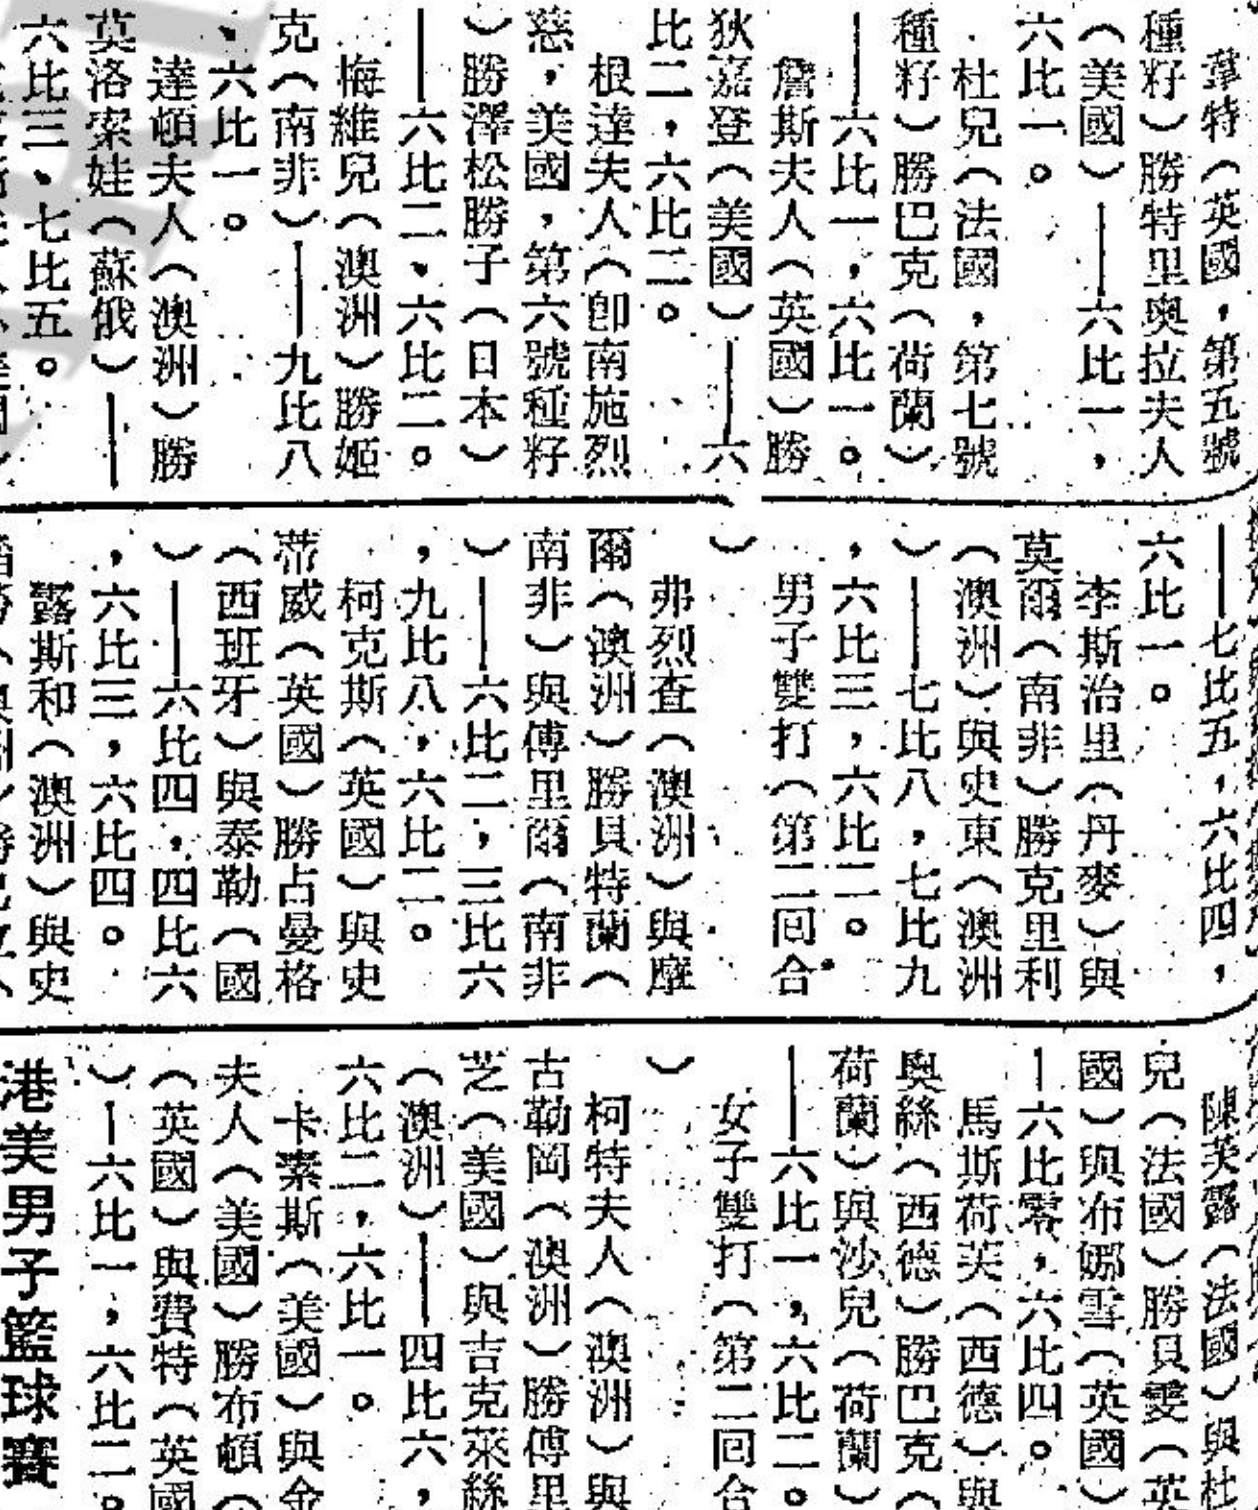 韋特（英國，第五號
種籽）勝特里奧拉夫人
（美國）——六比一，
六比一。
杜兒（法國，第七號
種籽）勝巴克（荷蘭）
——六比一，六比一。
詹斯夫人（英國）勝
狄嘉登（美國）——六
比二，六比二。
根達夫人（卽南施烈
慈，美國，第六號種籽
）勝澤松勝子（日本）
——六比二、六比二。
梅維兒（澳洲）勝姬
克（南非）——九比八
、六比一。
達頓夫人（澳洲）勝
莫洛索娃（蘇俄）——
六比三、七比五。
——七比五，六比四，
六比一。
李斯治里（丹麥）與
莫爾（南非）勝克里利
（澳洲）與史東（澳洲
）——七比八，七比九
，六比三，六比二。
男子雙打（第二回合
）
弗烈查（澳洲）與摩
爾（澳洲）勝貝特蘭（
南非）與傅里爾（南非
）——六比二，三比六
，九比八，六比二。
柯克斯（英國）與史
蒂威（英國）勝占曼格
（西班牙）與泰勒（國
）——六比四，四比六
，六比三，六比四。
露斯和（澳洲）與史
陳芙露（法國）與杜
兒（法國）勝貝雯（英
國）與布娜雪（英國）
—六比零，六比四。
馬斯荷芙（西德）與
奧絲（西德）勝巴克（
荷蘭）與沙兒（荷蘭）
——六比一，六比二。
女子雙打（第二回合
）
柯特夫人（澳洲）與
古勒岡（澳洲）勝傅里
芝（美國）與吉克萊絲
（澳洲）——四比六，
六比二，六比一。
卡素斯（美國）與金
夫人（美國）勝布頓（
（英國）與費特（英國
）—六比一，六比二。
港美男子籃球賽